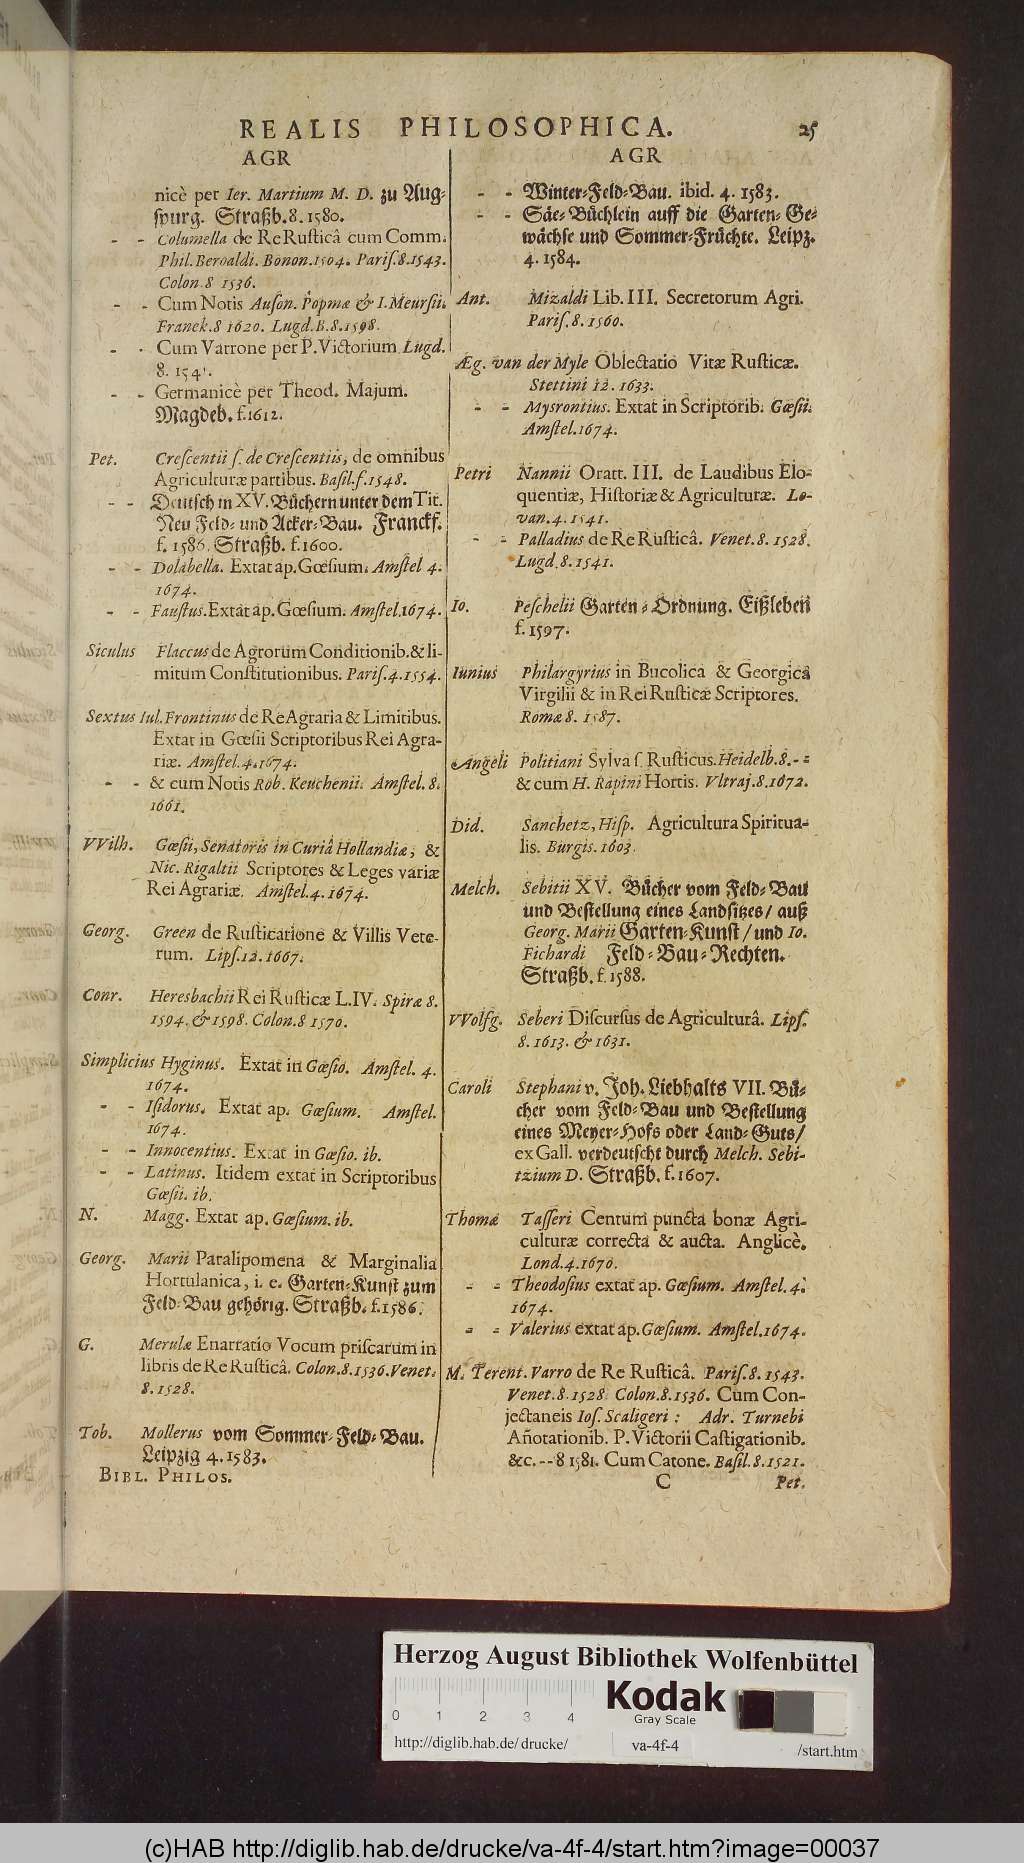 REALIS PHILOSOPHICA. 25
AGR
nicè per Ier. Martium M. D. zu Aug-
spurg. Straßb. 8. 1580.
- - Columella de Re Rusticâ cum Comm.
Phil. Beroaldi. Bonon. 1504. Paris. 8. 1543.
Colon. 8 1536.
- - Cum Notis Auson. Popmæ & I. Meursii.
Franek. 8 1620. Lugd. B. 8. 1598.
- - Cum Varrone per P. Victorium Lugd.
8. 154
- - Germanicè per Theod. Majum.
Magdeb. f. 1612.
Pet. Crescentii s. de Crescentiis, de omnibus
Agriculturæ partibus. Basil. f. 1548.
- - Deutsch in XV. Büchern unter dem Tit.
Neu Feld- und Acker-Bau. Franckf.
f. 1586. Straßb. f. 1600.
- - Dolabella. Extat ap. Gœsium. Amstel 4.
1674.
- - Faustus. Extat ap. Gœsium. Amstel. 1674.
Siculus Flaccus de Agrorum Conditionib. & li-
mitum Constitutionibus. Paris. 4. 1554.
Sextus Iul. Frontinus de Re Agraria & Limitibus.
Extat in Gœsii Scriptoribus Rei Agra-
riæ. Amstel. 4. 1674.
- - & cum Notis Rob. Keuchenii. Amstel. 8.
1661.
VVilh. Gœsii, Senatoris in Curiâ Hollandiæ, &
Nic. Rigaltii Scriptores & Leges variæ
Rei Agrariæ. Amstel. 4. 1674.
Georg. Green de Rusticatione & Villis Vete-
rum. Lips. 12. 1667.
Conr. Heresbachii Rei Rusticæ L. IV. Spiræ 8.
1594. & 1598. Colon. 8 1570.
Simplicius Hyginus. Extat in Gœsio. Amstel. 4.
1674.
- - Isidorus. Extat ap. Gœsium. Amstel.
1674.
- - Innocentius. Extat in Gœsio. ib.
- - Latinus. Itidem extat in Scriptoribus
Gœsii. ib.
N. Magg. Extat ap. Gœsium. ib.
Georg. Marii Paralipomena & Marginalia
Hortulanica, i. e. Garten-Kunst zum
Feld-Bau gehörig. Straßb. f. 1586.
G. Merulæ Enarratio Vocum priscarum in
libris de Re Rusticâ. Colon. 8. 1536. Venet.
8. 1528.
Tob. Mollerus vom Sommer-Feld-Bau.
Leipzig 4. 1583.
BIBL. PHILOS.
AGR
- - Winter-Feld-Bau. ibid. 4. 1583.
- - Säe-Büchlein auff die Garten-Ge-
wächse und Sommer-Früchte. Leipz.
4. 1584.
Ant. Mizaldi Lib. III. Secretorum Agri.
Paris. 8. 1560.
Æg. van der Myle Oblectatio Vitæ Rusticæ.
Stettini 12. 1633.
- - Mysrontius. Extat in Scriptorib. Gœsii.
Amstel. 1674.
Petri Nannii Oratt. III. de Laudibus Elo-
quentiæ, Historiæ & Agriculturæ. Lo-
van. 4. 1541.
- - Palladius de Re Rusticâ. Venet. 8. 1528.
Lugd. 8. 1541.
Io. Peschelii Garten-Ordnung. Eißleben
f. 1597.
Iunius Philargyrius in Bucolica & Georgica
Virgilii & in Rei Rusticæ Scriptores.
Romæ 8. 1587.
Angeli Politiani Sylva s. Rusticus. Heidelb. 8. - -
& cum H. Rapini Hortis. Vltraj. 8. 1672.
Did. Sanchetz, Hisp. Agricultura Spiritua-
lis. Burgis. 1603.
Melch. Sebitii XV. Bücher vom Feld-Bau
und Bestellung eines Landsitzes / auß
Georg. Marii Garten-Kunst / und Io.
Fichardi Feld-Bau-Rechten.
Straßb. f. 1588.
VVolfg. Seberi Discursus de Agriculturâ. Lips.
8. 1613. & 1631.
Caroli Stephani v. Joh. Liebhalts VII. Bü-
cher vom Feld-Bau und Bestellung
eines Meyer-Hofs oder Land-Guts /
ex Gall. verdeutscht durch Melch. Sebi-
tzium D. Straßb. f. 1607.
Thomæ Tasseri Centum puncta bonæ Agri-
culturæ correcta & aucta. Anglicè.
Lond. 4. 1670.
- - Theodosius extat ap. Gœsium. Amstel. 4.
1674.
- - Valerius extat ap. Gœsium. Amstel. 1674.
M. Terent. Varro de Re Rusticâ. Paris. 8. 1543.
Venet. 8. 1528. Colon. 8. 1536. Cum Con-
jectaneis Ios. Scaligeri: Adr. Turnebi
Añotationib. P. Victorii Castigationib.
&c. - - 8 1581. Cum Catone. Basil. 8. 1521.
C Pet.
Herzog August Bibliothek Wolfenbüttel
0 1 2 3 4
Kodak
Gray Scale
http://diglib.hab.de/drucke/ va-4f-4 /start.htm
(c)HAB http://diglib.hab.de/drucke/va-4f-4/start.htm?image=00037